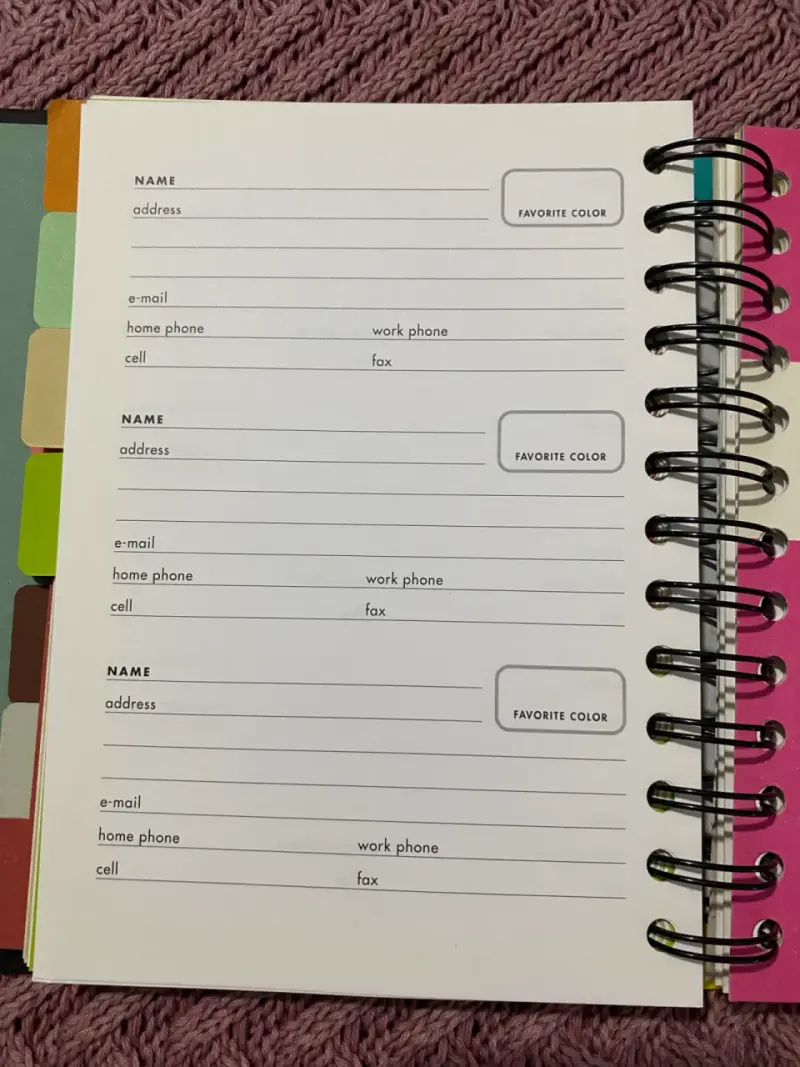 NAME
address
FAVORITE COLOR
e-mail
home phone work phone
cell fax
NAME
address
FAVORITE COLOR
e-mail
home phone work phone
cell fax
NAME
address
FAVORITE COLOR
e-mail
home phone work phone
cell fax